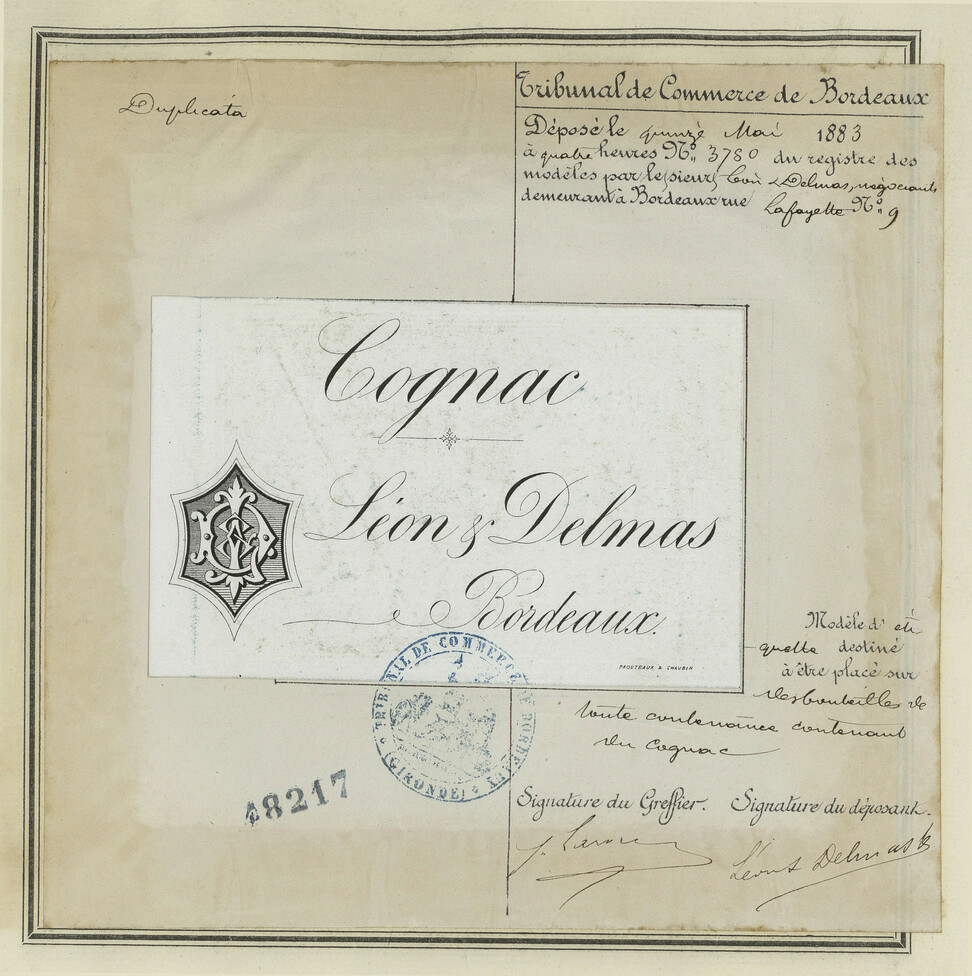 Duplicata
Tribunal de Commerce de Bordeaux
Déposé le quinze Mai 1883
à quatre heures No. 3780 du registre des
modèles par le(sieur) Léon & Delmas, négociants
demeurant à Bordeaux rue Lafayette No. 9
Cognac
Léon & Delmas
Bordeaux.
PROUTEAUX & CHAUBIN
Modèle d' éti-
quette destiné
à être placé sur
des bouteilles de
toute contenance contenant
du cognac
TRIBUNAL DE COMMERCE DE BORDEAUX
(GIRONDE)
48217
Signature du Greffier. Signature du déposant.
Léon & Delmas